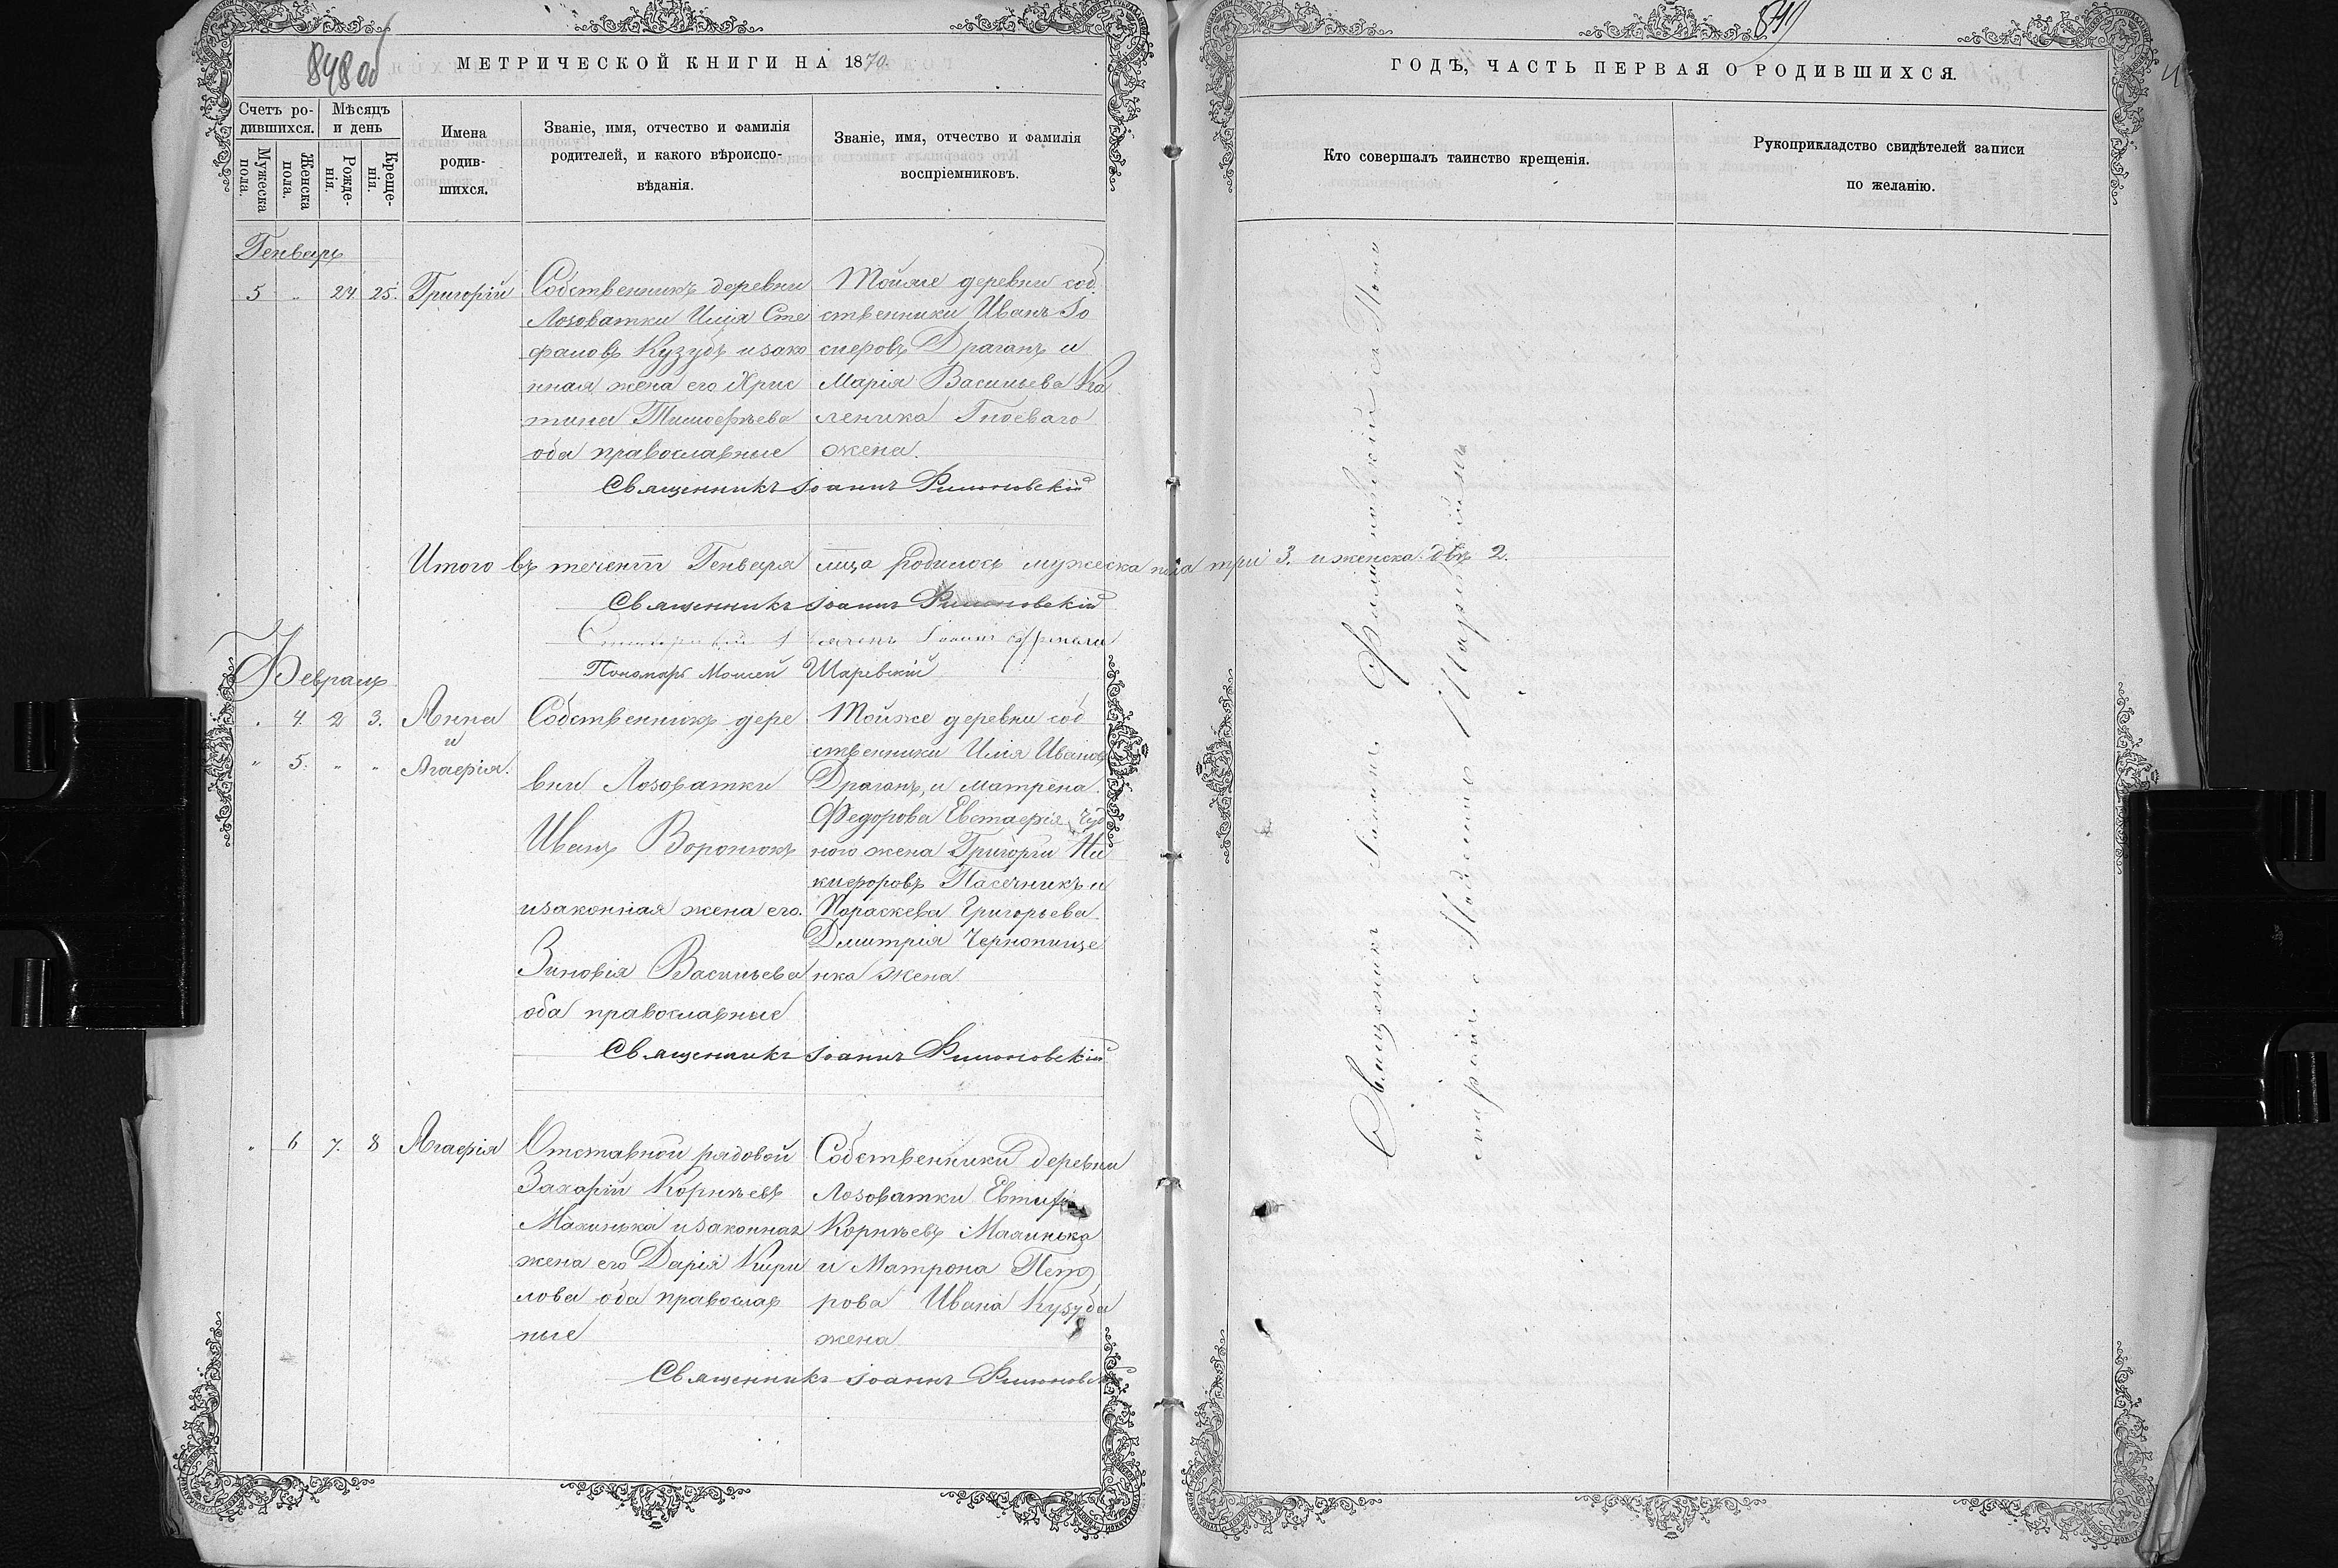 848 об
МЕТРИЧЕСКОЙ КНИГИ НА 1870.
Счетъ ро-
дившихся.
Мѣсяцъ
и день
Мужеска
пола.
Женска
пола.
Рожде-
нія.
Креще-
нія.
Имена
родив-
шихся.
Званіе, имя, отчество и фамилія
родителей, и какого вѣроиспо-
вѣданія.
Званіе, имя, отчество и фамилія
воспріемниковъ.
Генварь
5 " 24 25. Григорій
Собственникъ деревни
Лозоватки Илія Сте
фановъ Кузубъ и зако
нная жена его Хрис
тина Тимофѣева
оба православные
Тойже деревни соб
ственники Иванъ Іо
сифовъ Драганъ и
Марія Васильева Ка
леника Гноеваго
жена.
Священникъ Іоаннъ Филиповскій
Итого въ теченіи Генваря мца родилось мужеска пола три 3. и женска двѣ 2.
Священникъ Іоаннъ Филиповскій
Іоаннъ
Пономарь Моисей Шаревскій
Февраль
" 4. 2 3. Анна
и
" 5. " " Агафія.
Собственникъ дере
вни Лозоватки
Иванъ Воронюкъ
и законная жена его.
Зиновія Васильева
оба православные
Тойже деревни соб
ственники Илія Ивановъ
Драганъ, и Матрена
Федорова Евстафія Чуд
ного жена Григорій Ни
кифоровъ Пасечникъ и
Параскева Григорьева
Дмитрія Чернопище
нка жена
Священникъ Іоаннъ Филиповскій
" 6 7. 8 Агафія
Отставной рядовой
Захарій Корнѣевъ
Махинька и законная
жена его Дарія Кири
лова оба православ
ные
Собственники деревни
Лозоватки
Корнѣевъ Махинька
и Матрона Пет
рова Ивана Кузуба
жена
Священникъ Іоаннъ Филиповскій
849
ГОДЪ, ЧАСТЬ ПЕРВАЯ О РОДИВШИХСЯ.
Кто совершалъ таинство крещенія.
Рукоприкладство свидѣтелей записи
по желанію.
Священникъ Іоаннъ Филиповскій съ Поно
маремъ Моисеемъ Шаревскимъ